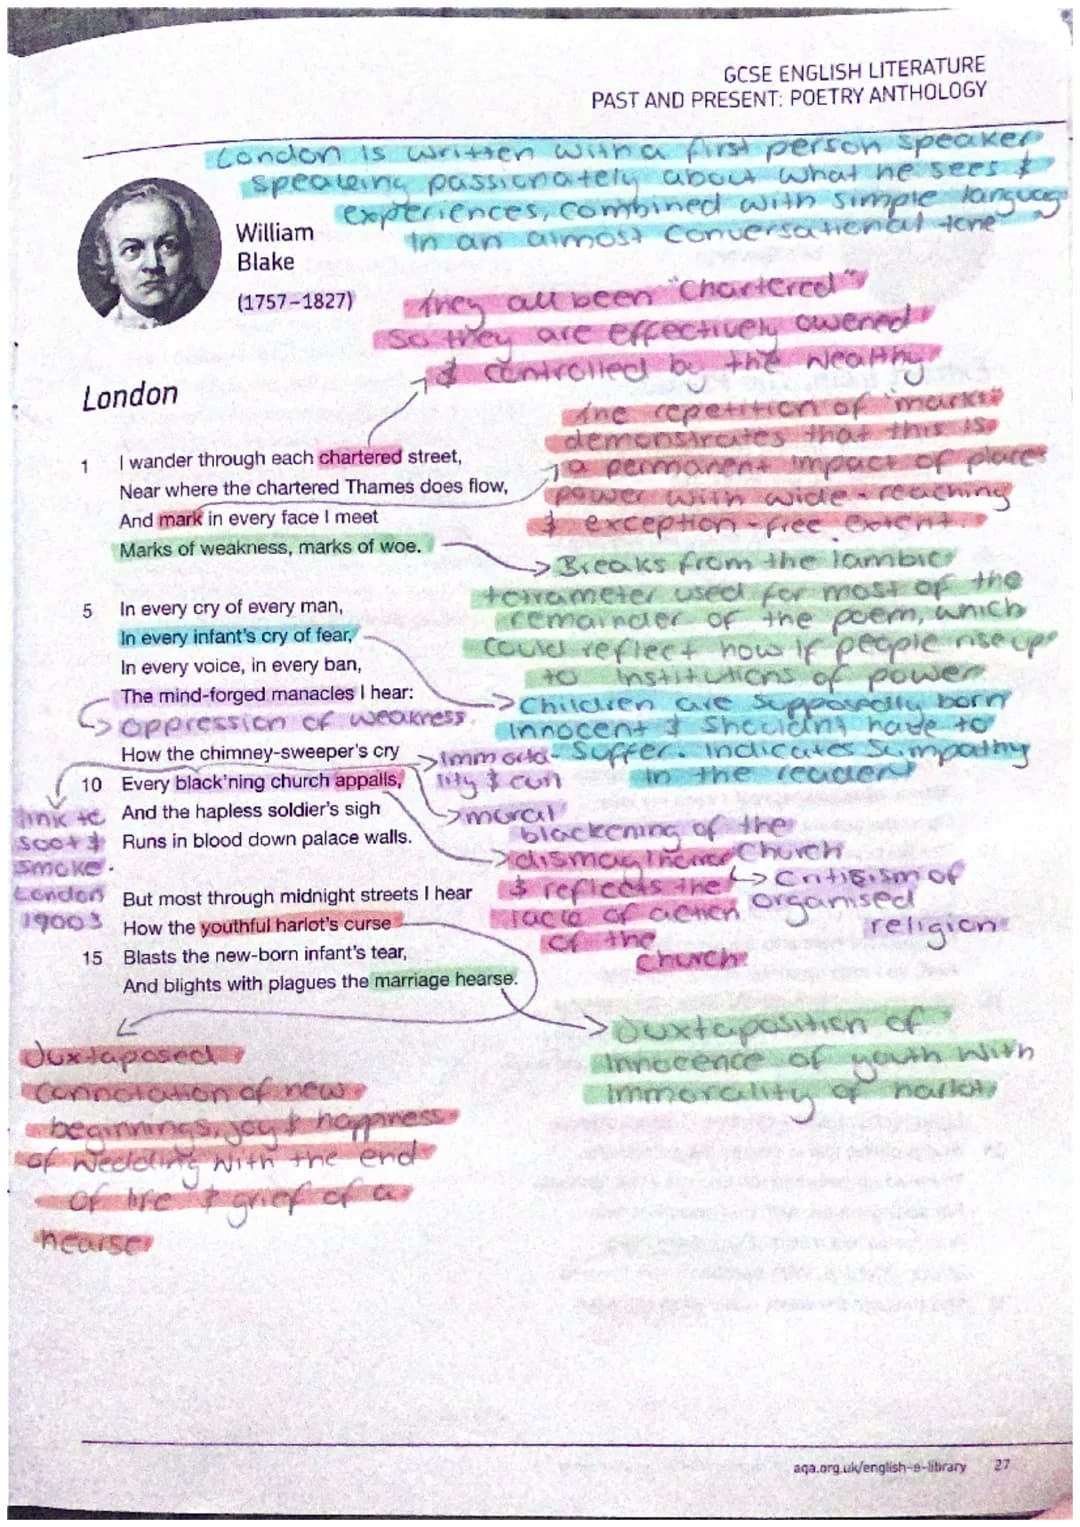 GCSE ENGLISH LITERATURE
PAST AND PRESENT: POETRY ANTHOLOGY
London is written with a first person speaker
speaking passionately about what he sees &
experiences, combined with simple language
In an almost conversational tone
William
Blake
(1757–1827)
they all been "chartered"
So they are effectively owened
& controlled by the wealthy
London
the repetition of 'marks'
demonstrates that this is
a permanent impact of places
power with wide-reaching
& exception-free extent.
1 I wander through each chartered street,
Near where the chartered Thames does flow,
And mark in every face I meet
Marks of weakness, marks of woe.
Breaks from the Iambic
tetrameter used for most of the
remainder of the poem, which
could reflect how if people rise up
to Institutions of power
5 In every cry of every man,
In every infant's cry of fear,
In every voice, in every ban,
The mind-forged manacles I hear:
oppression of weakness
Children are supposedly born
innocent & shouldn't have to
suffer. Indicates Sympathy
in the reader
How the chimney-sweeper's cry
10 Every black'ning church appalls,
And the hapless soldier's sigh
Runs in blood down palace walls.
Immora-
lity & evil
moral
blackening of the
church
criticism of
organised
religion
link to
soot &
smoke.
London
1900s
& reflects the
lack of action
of the
church
But most through midnight streets I hear
How the youthful harlot's curse
15 Blasts the new-born infant's tear,
And blights with plagues the marriage hearse.
Juxtaposed
connotation of new
beginnings, joy & happness
of wedding with the end
of life & grief of a
hearse
Juxtaposition of
Innocence of youth with
immorality of harlot
aqa.org.uk/english-e-library 27